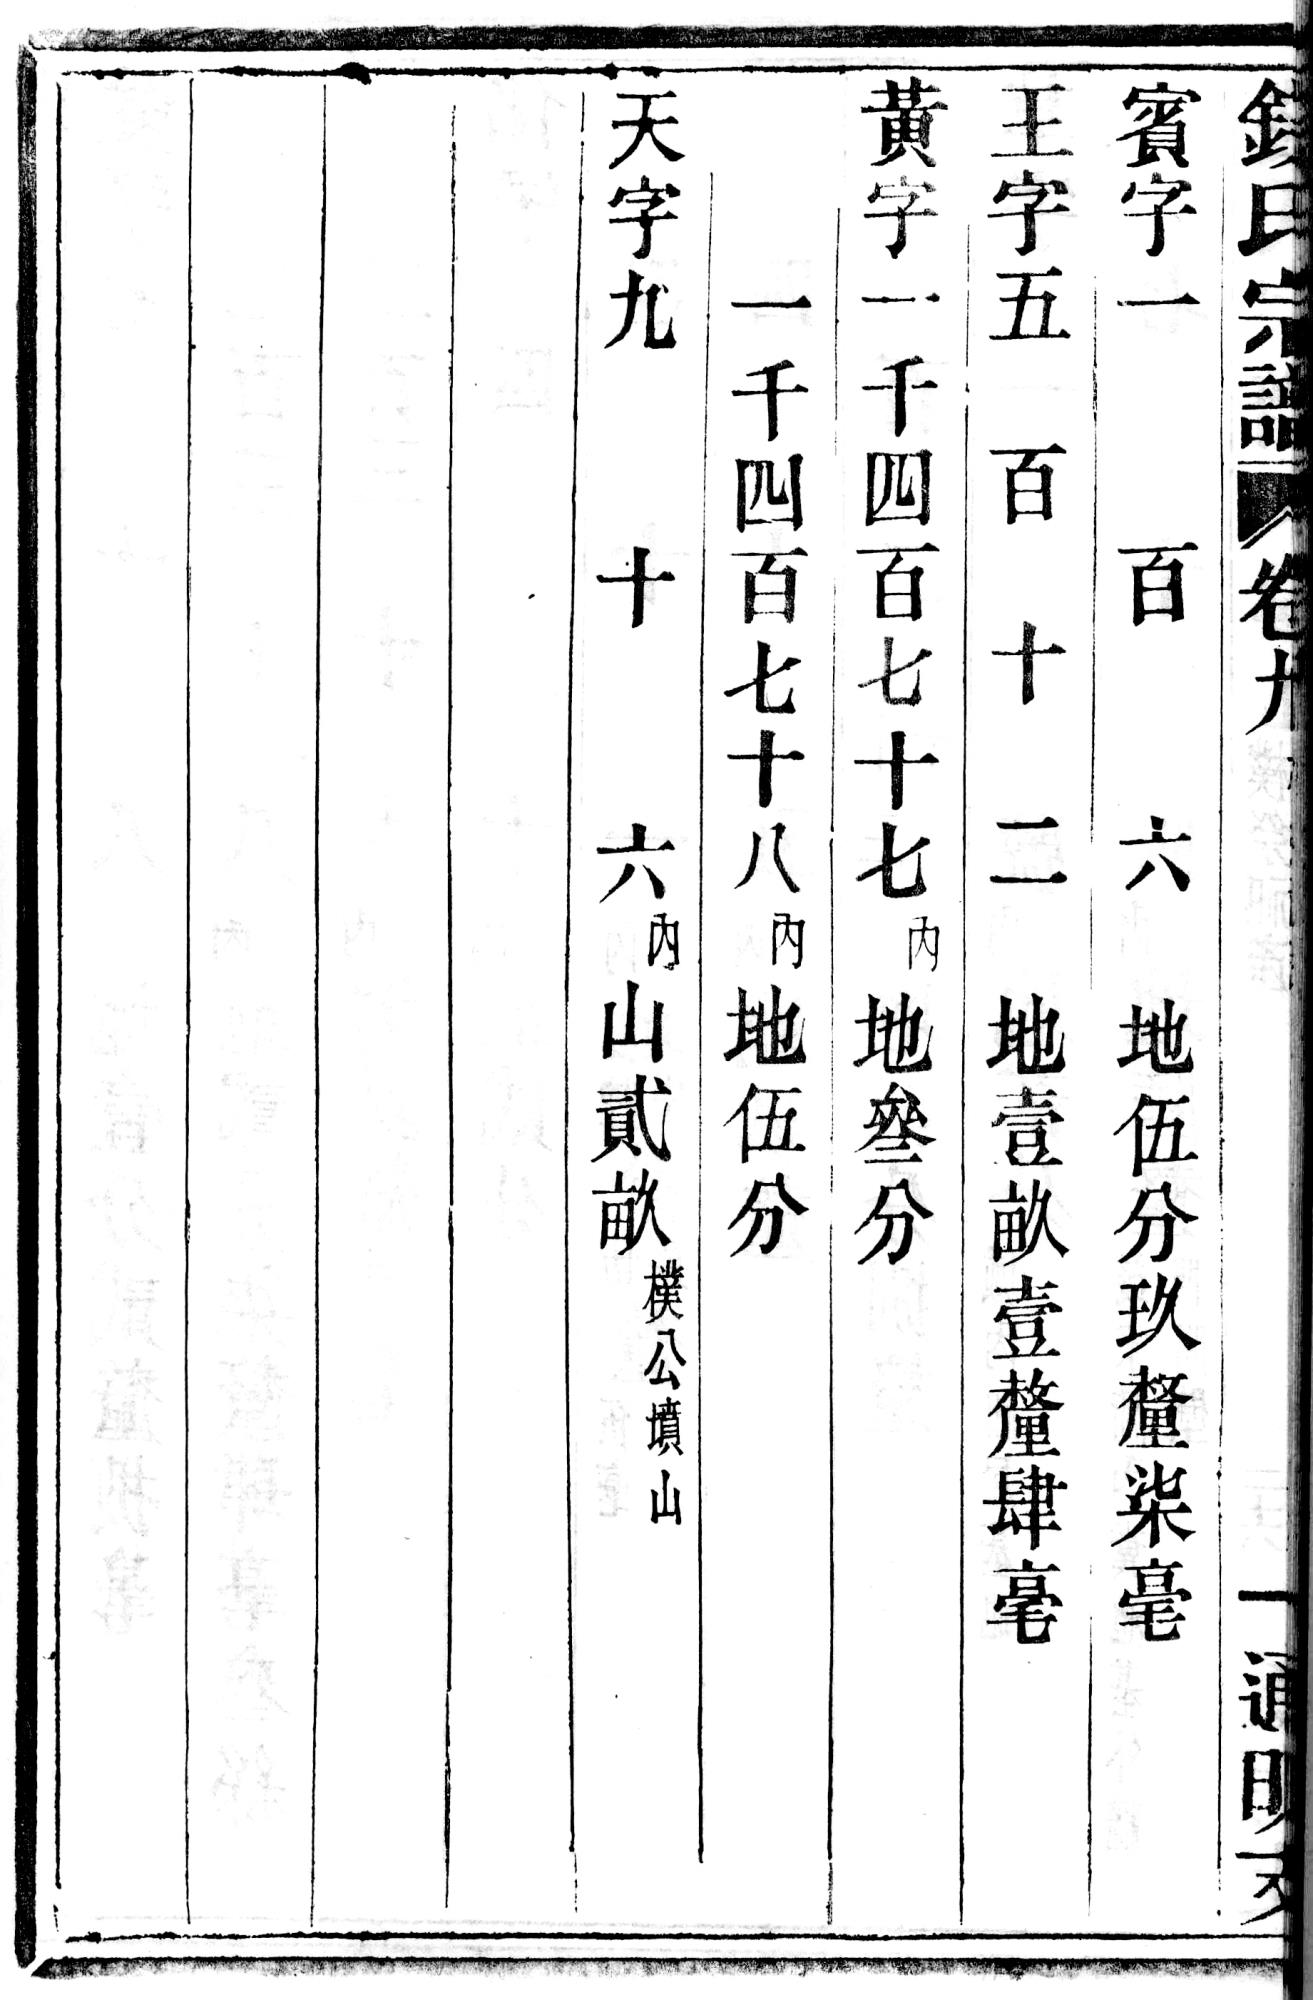 錢氏宗譜 卷九 一 通明支
賓字一百六 地伍分玖釐柒毫
王字五百十二 地壹畝壹釐肆毫
黃字一千四百七十七內 地叄分
一千四百七十八內 地伍分
天字九十六內 山貳畝 樸公墳山